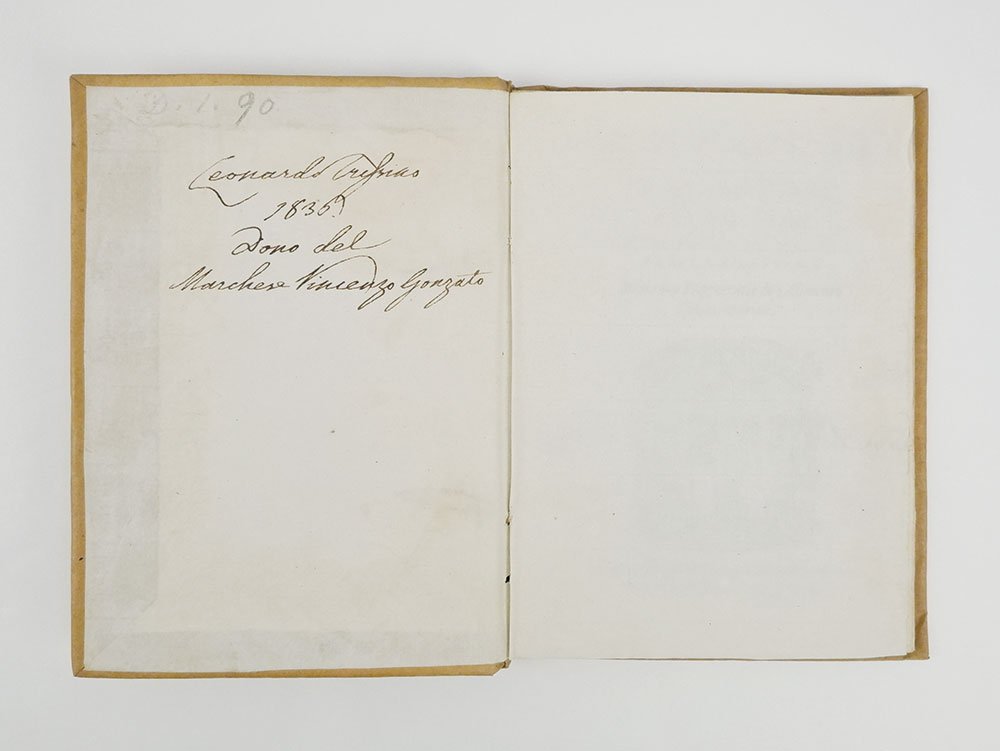 D. 1. 90
Leonardo Trissino
1836.
Dono del
Marchese Vincenzo Gonzato